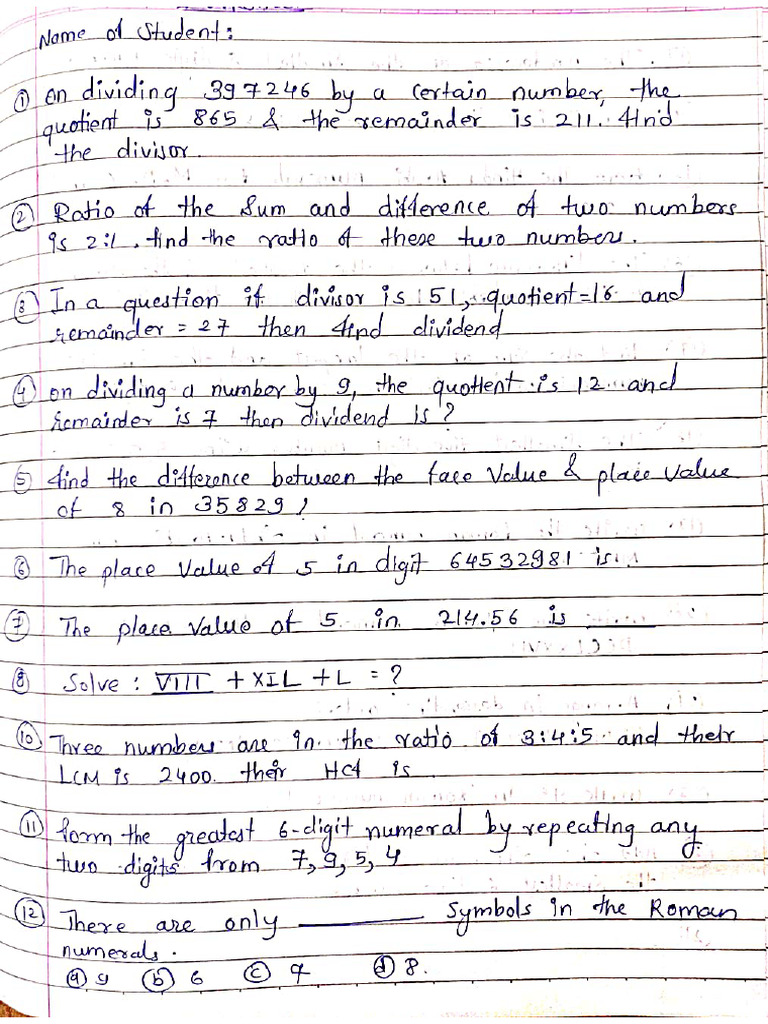 Name of Student:
① on dividing 397246 by a certain number, the
quotient is 865 & the remainder is 211. find
the divisor.
② Ratio of the Sum and difference of two numbers
is 2:1. find the ratio of these two numbers.
③ In a question if divisor is 51, quotient=16 and
remainder = 27 then find dividend
④ on dividing a number by 9, the quotient is 12 and
remainder is 7 then dividend is ?
⑤ find the difference between the face value & place value
of 8 in 35829 ?
⑥ The place value of 5 in digit 64532981 is.
⑦ The place value of 5 in 214.56 is ______
⑧ Solve : V̅I̅I̅I̅ + XIL + L = ?
⑩ Three numbers are in the ratio of 3:4:5 and their
LCM is 2400. their HCf is
⑪ form the greatest 6-digit numeral by repeating any
two digits from 7, 9, 5, 4
⑫ There are only ________ Symbols in the Roman
numerals.
ⓐ 9 ⓑ 6 ⓒ 7 ⓓ 8.